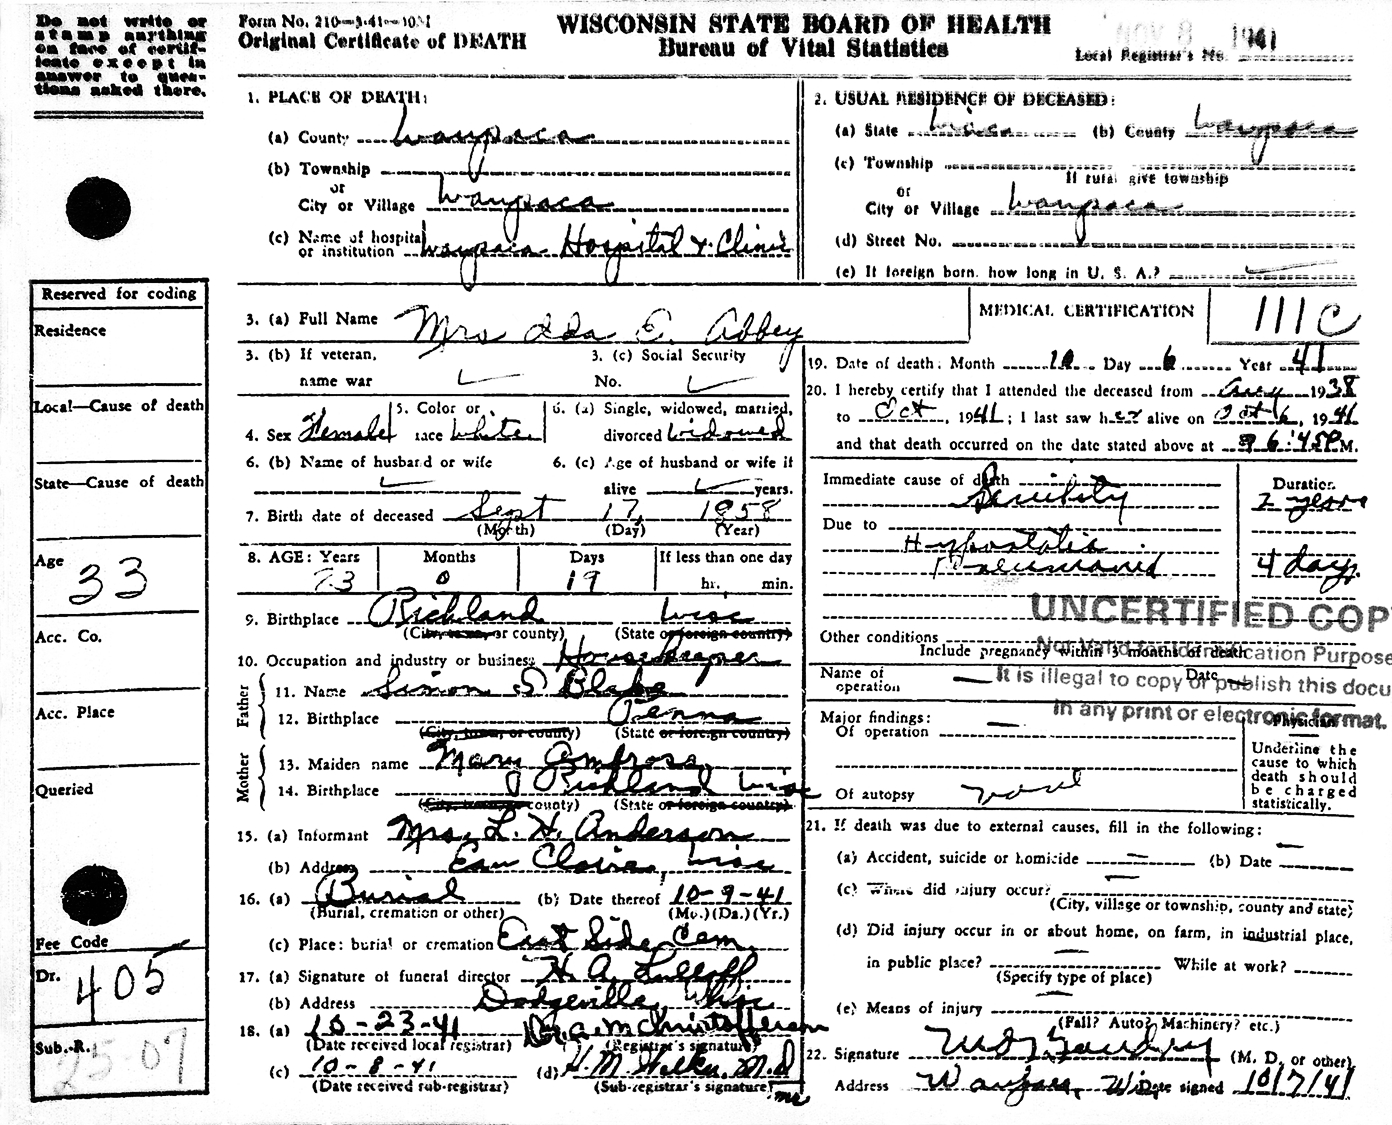 Do not write or
stamp anything
on face of certif-
icate except in
answer to ques-
tions asked there.
Form No. 210-3-41-10M
Original Certificate of DEATH
WISCONSIN STATE BOARD OF HEALTH
Bureau of Vital Statistics
NOV 8 1941
Local Registrar's No.
1. PLACE OF DEATH:
(a) County Waupaca
(b) Township
or
City or Village Waupaca
(c) Name of hospital
or institution Waupaca Hospital & Clinic
2. USUAL RESIDENCE OF DECEASED:
(a) State Wisc (b) County Waupaca
(c) Township
If rural give township
or
City or Village Waupaca
(d) Street No.
(e) If foreign born, how long in U. S. A.?
Reserved for coding
Residence
Local—Cause of death
State—Cause of death
Age 33
Acc. Co.
Acc. Place
Queried
Fee Code
Dr. 405
Sub.-R. 25-07
3. (a) Full Name Mrs Ida E. Abbey
3. (b) If veteran,
name war
3. (c) Social Security
No.
4. Sex Female
5. Color or
race White
6. (a) Single, widowed, married,
divorced Widowed
6. (b) Name of husband or wife
6. (c) Age of husband or wife if
alive years.
7. Birth date of deceased Sept 17, 1858
(Month) (Day) (Year)
8. AGE: Years Months Days If less than one day
0 19 hr. min.
9. Birthplace Richland Wisc
(City, town, or county) (State or foreign country)
10. Occupation and industry or business Housekeeper
Father
11. Name Simon S Blake
12. Birthplace Penna
(City, town, or county) (State or foreign country)
Mother
13. Maiden name Mary Ambrose
14. Birthplace Richland Wisc
(City, town, or county) (State or foreign country)
15. (a) Informant Mrs. L. H. Anderson
(b) Address Eau Claire, Wisc
16. (a) Burial (b) Date thereof 10-9-41
(Burial, cremation or other) (Mo.)(Da.)(Yr.)
(c) Place: burial or cremation East Side Cem.
17. (a) Signature of funeral director H. A.
(b) Address Dodgeville, Wisc
18. (a) 10-23-41
(Date received local registrar) (Registrar's signature)
(c) 10-8-41 (d) H. M. M.D
(Date received sub-registrar) (Sub-registrar's signature)
MEDICAL CERTIFICATION
111c
19. Date of death: Month 10 Day 6 Year 41
20. I hereby certify that I attended the deceased from Aug 1938
to Oct, 1941; I last saw her alive on Oct 6, 1941
and that death occurred on the date stated above at 6:45P M.
Immediate cause of death Senility
Duration
2 years
Due to
Hypostatic
Pneumonia 4 days.
UNCERTIFIED COPY
Not Valid for Identification Purpose
It is illegal to copy or publish this docu
in any print or electronic format.
Other conditions
Include pregnancy within 3 months of death
Name of
operation
Date
Major findings:
Of operation
Of autopsy
Physician
Underline the
cause to which
death should
be charged
statistically.
21. If death was due to external causes, fill in the following:
(a) Accident, suicide or homicide (b) Date
(c) Where did injury occur?
(City, village or township, county and state)
(d) Did injury occur in or about home, on farm, in industrial place,
in public place? While at work?
(Specify type of place)
(e) Means of injury
(Fall? Auto? Machinery? etc.)
22. Signature (M. D. or other)
Address Waupaca, Wis Date signed 10/7/41